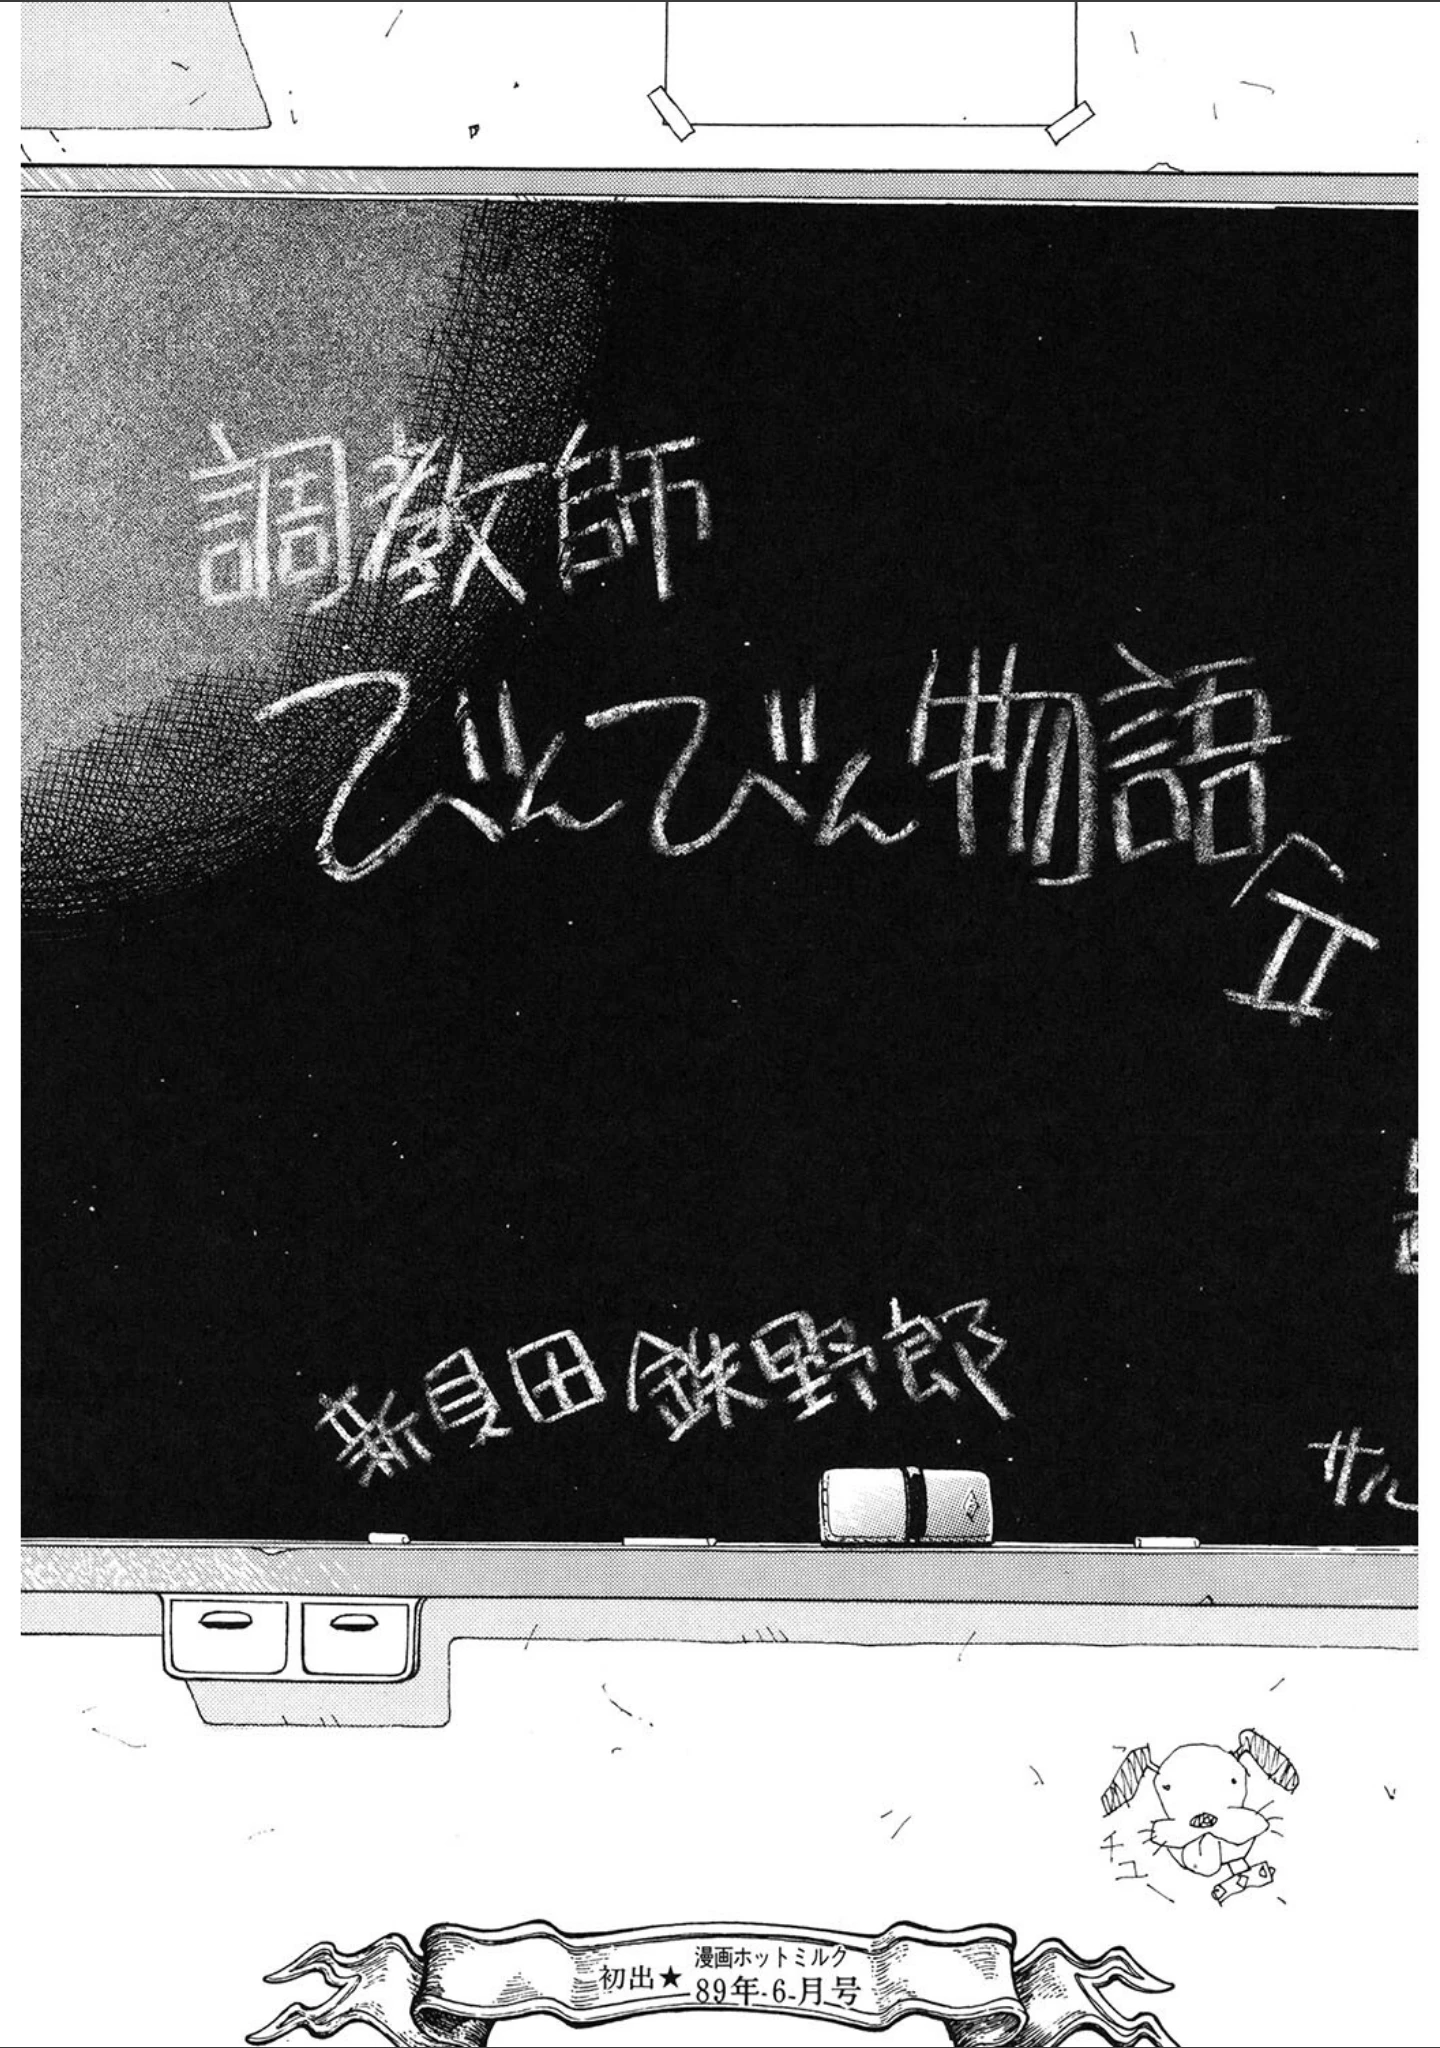 調教師
びんびん物語
II
新貝田鉄野郎
サル
チュー
初出★漫画ホットミルク
89年6月号